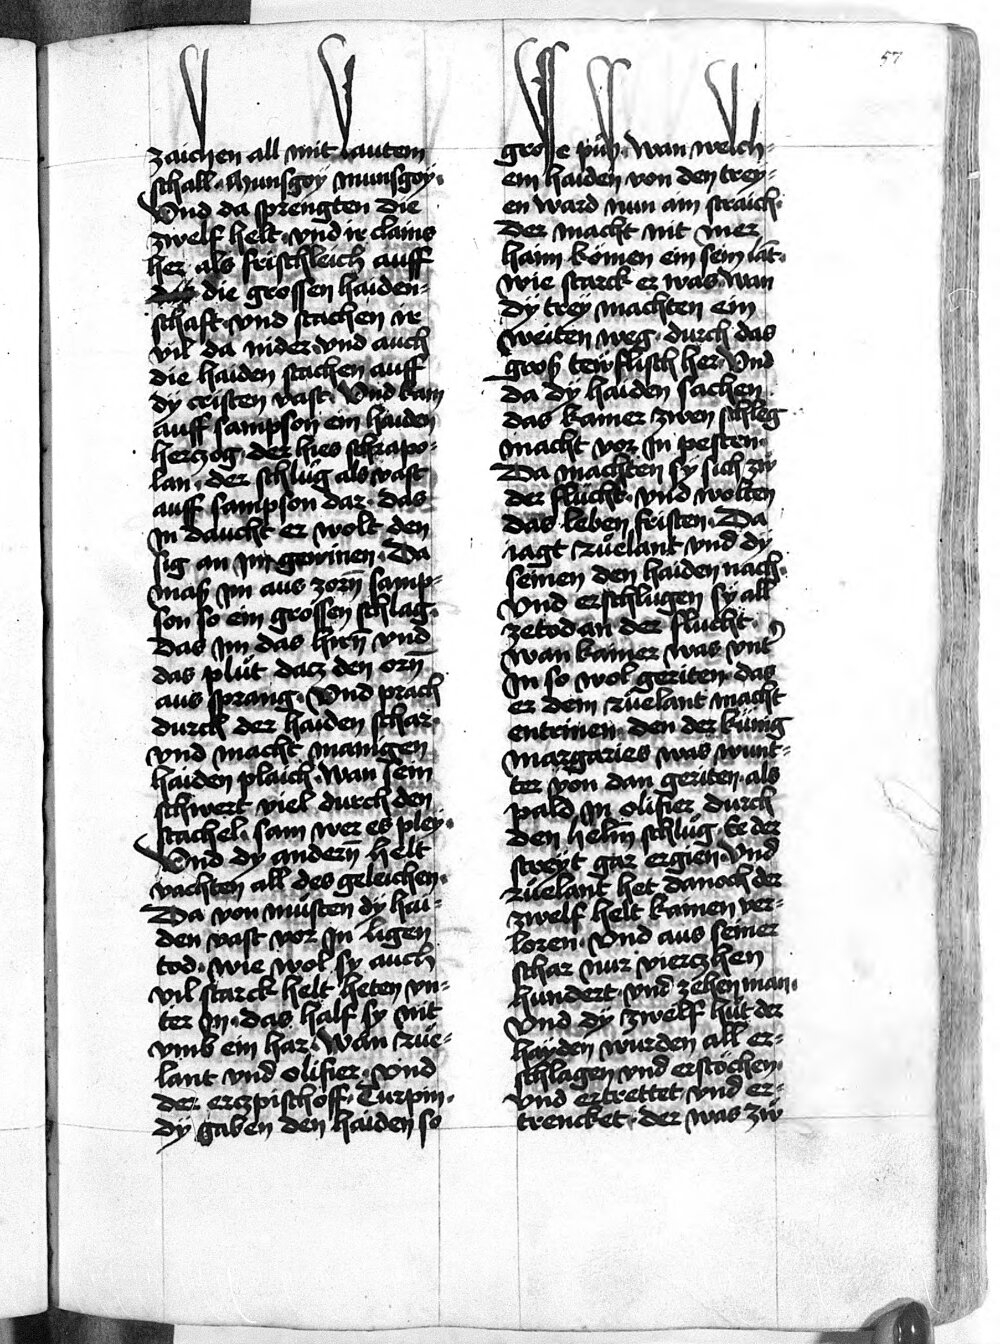 57
zaichen all mit lautem
schall · Munsgoy munsgoy ·
Vnd da sprengten die
zwelf helt · vnd ir clains
her · als frischleich auff
die grossen haiden-
schaft · vnd stachen ir
vil da nider · vnd auch
die haiden stachen auff
dy cristen vast · Vnd kam
auff sampson ein haiden
herczog · der hies schrapo-
lan · der schlůg als vast
auff sampson dar · das
in daucht er wolt den
sig an im gewinen · Da
maß im aus zorn samp-
son so ein grossen schlag ·
Das im das hirn vnd
das plůt dacz den orn
aus sprang · Vnd prach
durch der haiden schar ·
vnd macht manigen
haiden plaich · Wan sein
schwert viel durch den
stachel · sam wer es pley ·
Vnd dy andern helt
vachten all des geleichen ·
Da von můsten dy hai-
den vast vor in ligen
tod · wie wol sy auch
vil starck helt heten vn-
ter in · das half sy nit
vmb ein har · Wan růe-
lant vnd olifier · vnd
der erczpischoff · Turpin ·
dy gaben den haiden so
grosse půß · Wan welch-
em haiden von den trey-
en ward nun ain straich ·
Der macht nit mer
haim kömen ein sein lāt ·
wie starck er was · Wan
dy trey machten ein
weiten weg · durch das
groß tewflisch her · Vnd
da dy haiden sachen
das kainer zwen schleg
macht vor in pesten ·
Da machten sy sich zů
der flůcht · vnd wolten
das leben fristen · Da
iagt růelant vnd dy
seinen den haiden nach ·
Vnd erschlůgen sy all
zetod an der flůcht ·
wan kainer was vnt̄
in so wol geriten · das
er dem růelant macht
entrinen · den der kůnig
margaries was wunt-
ter von dan geriten · als
pald in olifier durch
den helm schlůg · Ee der
streyt gar ergien · Vnd
růelant het danoch der
zwelf helt kainen ver-
loren · Vnd aus seiner
schar nur vierczhen
hundert · vnd zehen man ·
Vnd dy zwelf hůt der
hayden wurden all er-
schlagen vnd erstochen ·
vnd ertrettet · vnd er-
trencket · der was zů